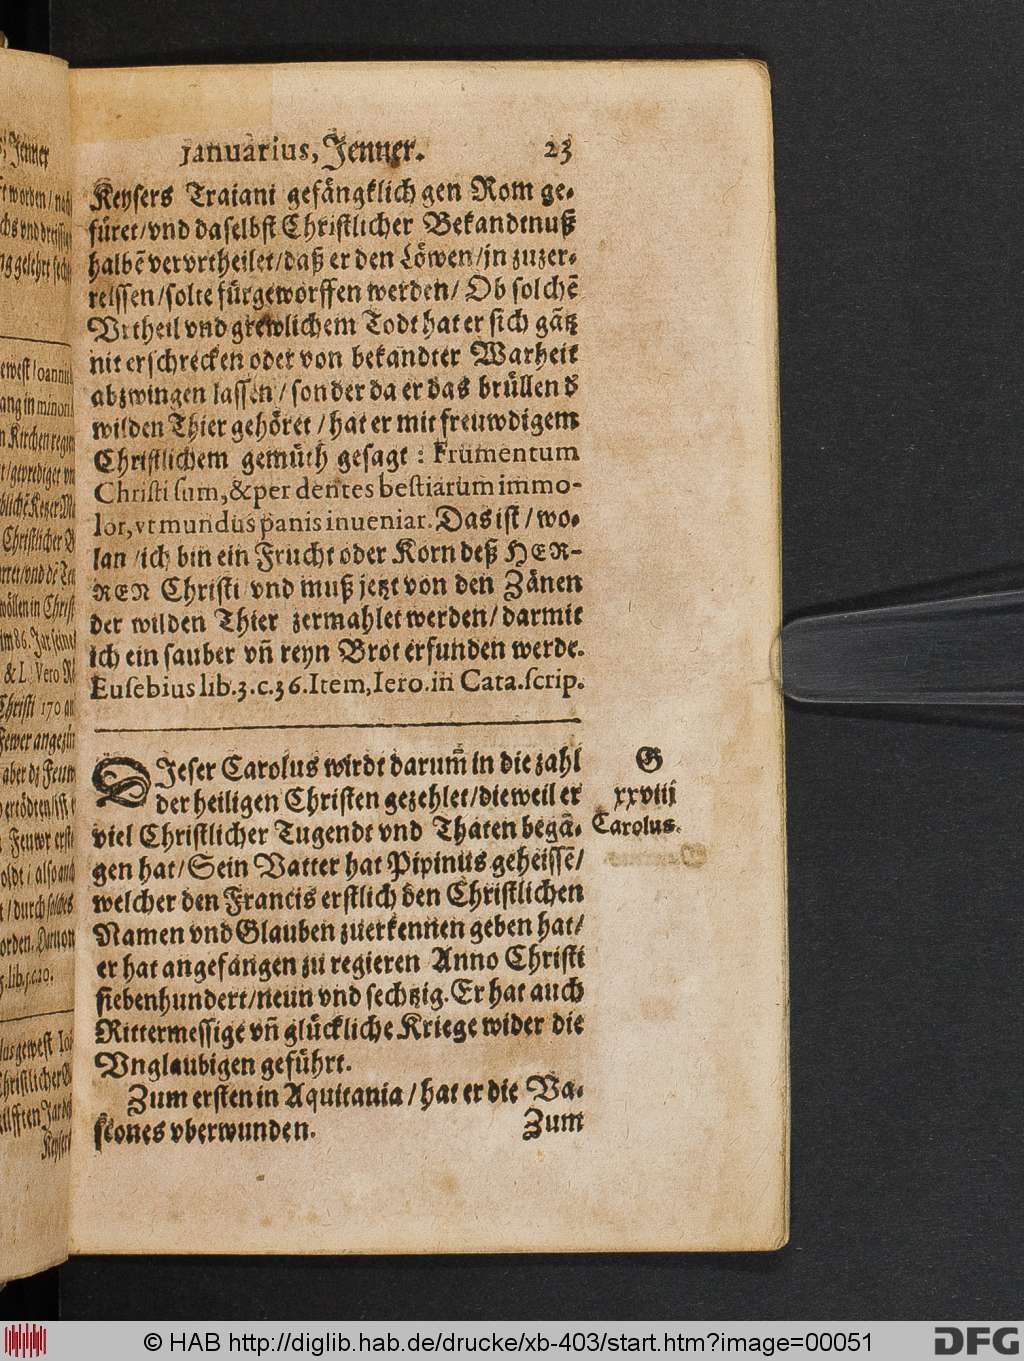 Januarius, Jenner. 23
Keysers Traiani gefängklich gen Rom ge⸗
füret/vnd daselbst Christlicher Bekandtnuß
halbē vervrtheilet/daß er den Löwen/jn zuzer⸗
reissen/solte fürgeworffen werden/ Ob solchē
Vrtheil vnd grewlichem Todt hat er sich gātz
nit erschrecken oder von bekandter Warheit
abzwingen lassen/ sonder da er das brüllen d̕
wilden Thier gehöret/hat er mit freuwdigem
Christlichem gemüth gesagt: Frumentum
Christi sum, & per dentes bestiarum immo-
lor, vt mundus panis inueniar. Das ist/wo⸗
lan/ich bin ein Frucht oder Korn deß HER-
REN Christi vnd muß jetzt von den Zänen
der wilden Thier zermahlet werden/darmit
ich ein sauber vñ reyn Brot erfunden werde.
Eusebius lib.3.c.36. Item, Iero.in Cata.scrip.
DJeser Carolus wirdt darum̄ in die zahl
der heiligen Christen gezehlet/dieweil er
viel Christlicher Tugendt vnd Thaten begā⸗
gen hat/Sein Vatter hat Pipinus geheissē/
welcher den Francis erstlich den Christlichen
Namen vnd Glauben zuerkennen geben hat/
er hat angefangen zu regieren Anno Christi
siebenhundert/neun vnd sechtzig. Er hat auch
Rittermessige vñ glückliche Kriege wider die
Vnglaubigen geführt.
Zum ersten in Aquitania/hat er die Va⸗
scones vberwunden.
Zum
G
xxviij
Carolus.
© HAB http://diglib.hab.de/drucke/xb-403/start.htm?image=00051
DFG